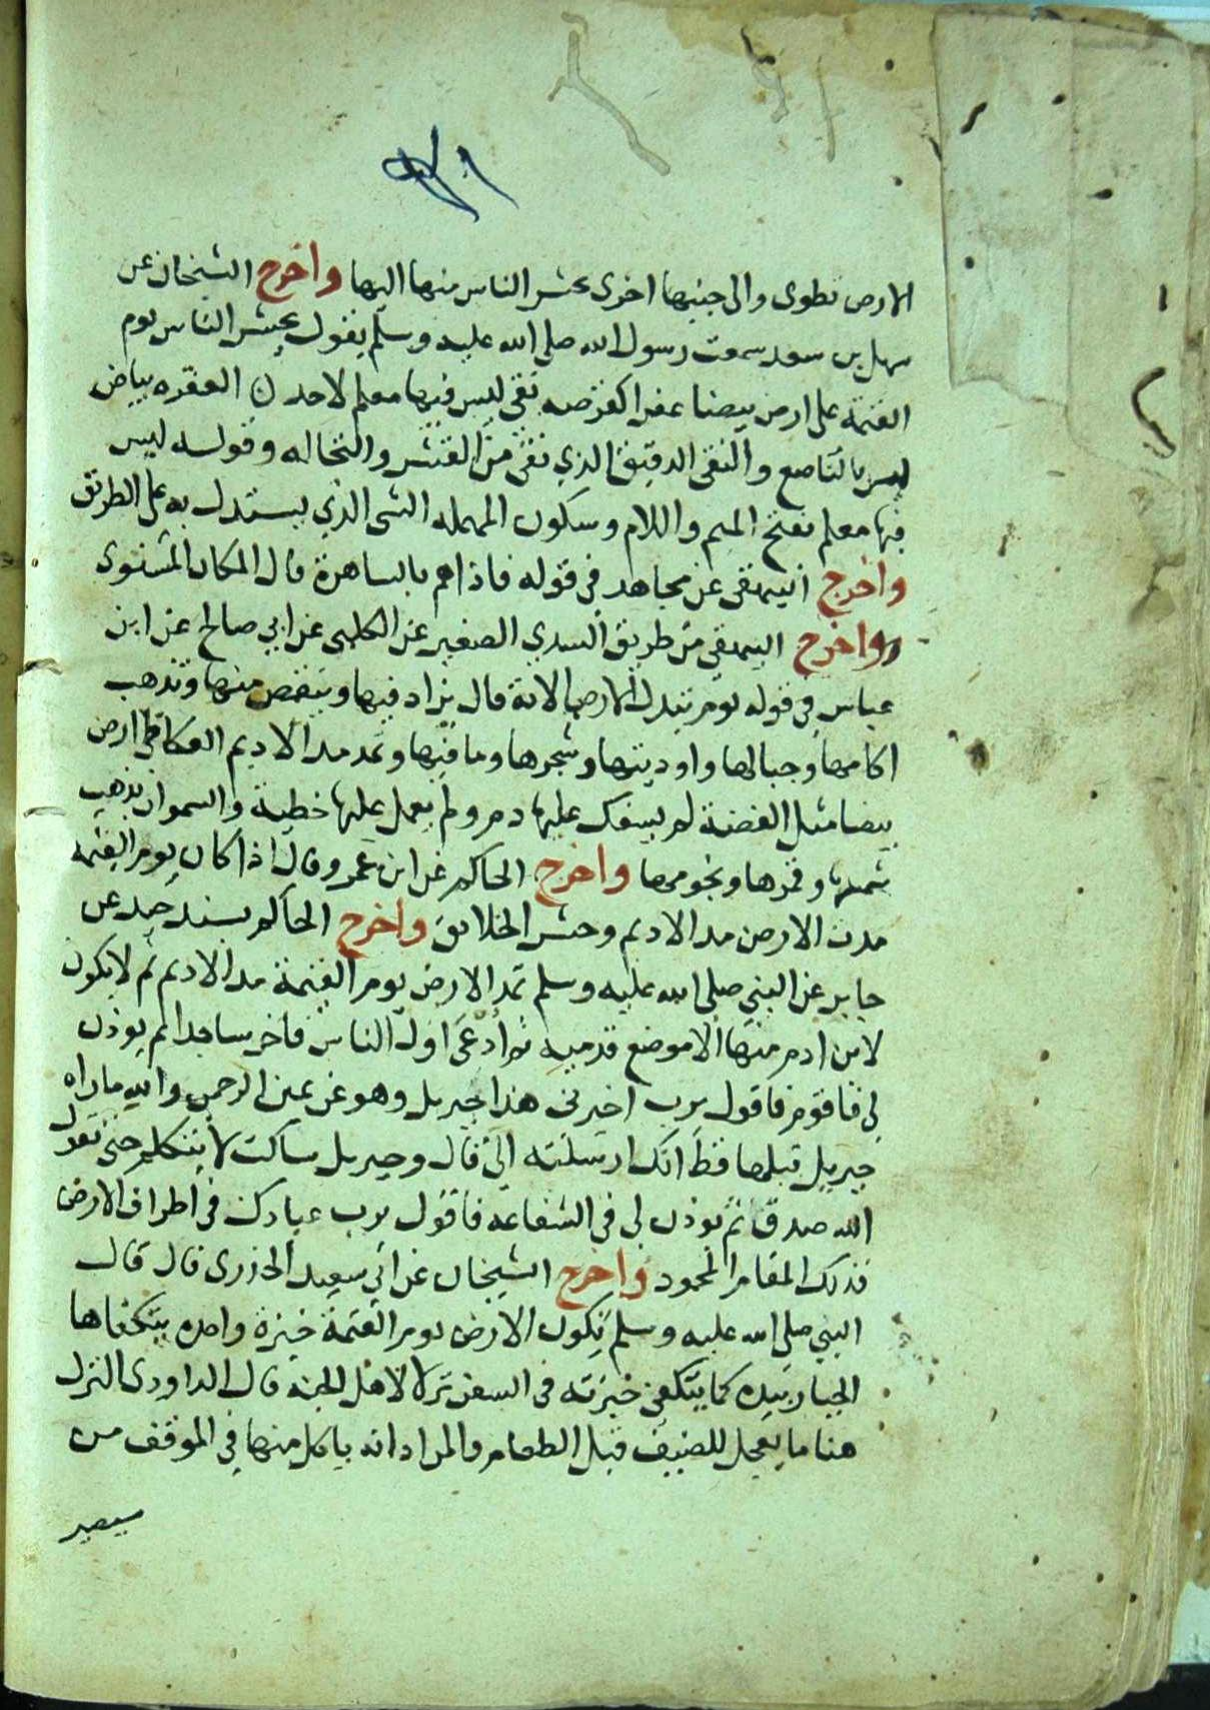 الارض تطوى والى جنبها اخرى يحشر الناس منها اليها واخرج الشيخان عن
سهل بن سعد سمعت رسول الله صلى الله عليه وسلم يقول يحشر الناس يوم
القيمة على ارض بيضا عفرا كقرصة نقي ليس فيها معلم لاحد العفره بياض
ليس بالناصع والنقى الدقيق الذي نقى من القشر والنخاله وقوله ليس
فيها معلم بفتح الميم واللام وسكون المهمله الشى الذي يستدل به على الطريق
واخرج البيهقى عن مجاهد في قوله فاذا هم بالساهرة قال المكان المستوى
واخرج البيهقي من طريق السدي الصغير عن الكلبى عن ابي صالح عن ابن
عباس في قوله يوم تبدل الارض الاية قال يزاد فيها وينقص منها وتذهب
اكامها وجبالها واوديتها وشجرها وما فيها وتمد مد الاديم العكاظى ارض
بيضا مثل الفضة لم يسفك عليها دم ولم يعمل عليها خطية والسموات تذهب
شمسها وقمرها ونجومها واخرج الحاكم عن ابن عمرو قال اذا كان يوم القيمة
مدت الارض مد الاديم وحشر الخلائق واخرج الحاكم بسند جيد عن
جابر عن النبي صلى الله عليه وسلم تمد الارض يوم القيمة مد الاديم ثم لا يكون
لابن ادم منها الا موضع قدميه ثم ادعى اول الناس فاخر ساجدا ثم يوذن
لي فاقوم فاقول يرب اخبرنى هذا جبريل وهو عن يمين الرحمن والله ماراه
جبريل قبلها قط انك ارسلته الي قال وجبريل ساكت لا يتكلم حتى يقول
الله صدق ثم يوذن لى في الشفاعه فاقول يرب عبادك في اطراف الارض
فذلك المقام المحمود واخرج الشيخان عن ابي سعيد الخدرى قال قال
النبي صلى الله عليه وسلم تكون الارض يوم القيمة خبزة واحده يتكفاها
الجبار بيده كما يتكفى خبزته في السفر نزلا لاهل الجنة قال الداودى النزل
هنا ما يعجل للضيف قبل الطعام والمراد انه ياكل منها في الموقف من
سيصير